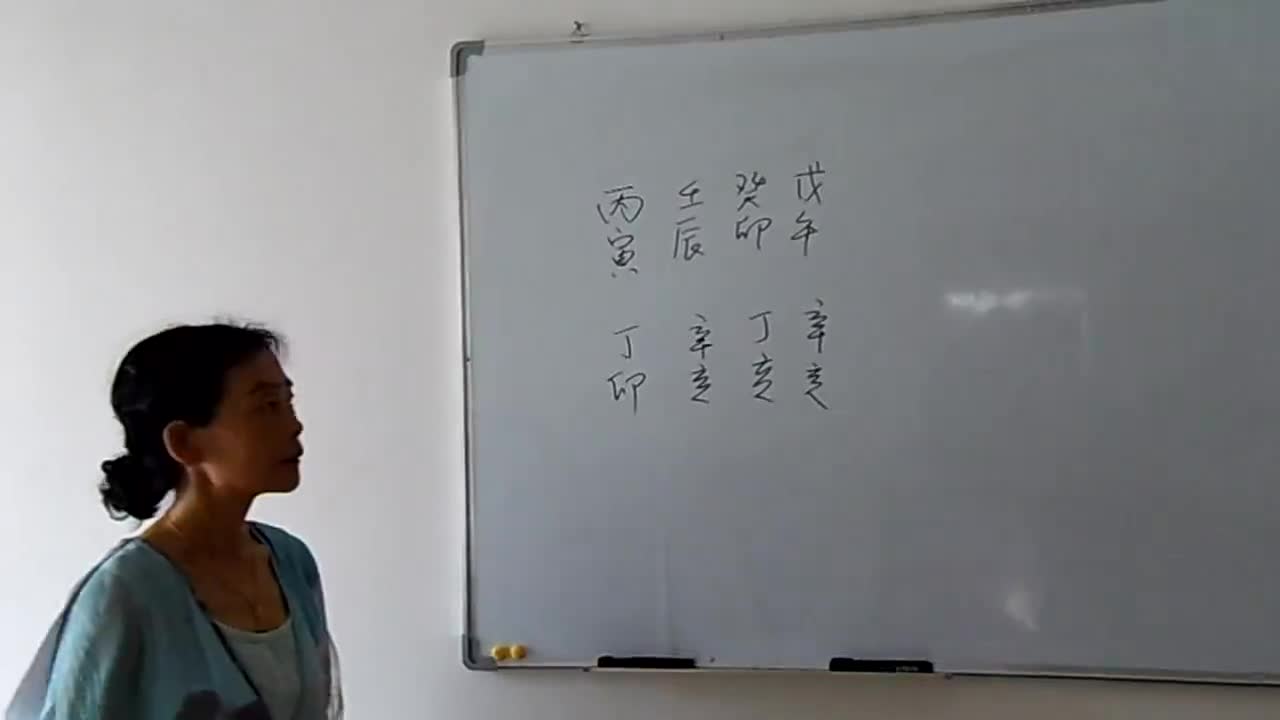 丙 壬 癸 戊
寅 辰 卯 午
丁 辛 丁 辛
卯 亥 亥 亥